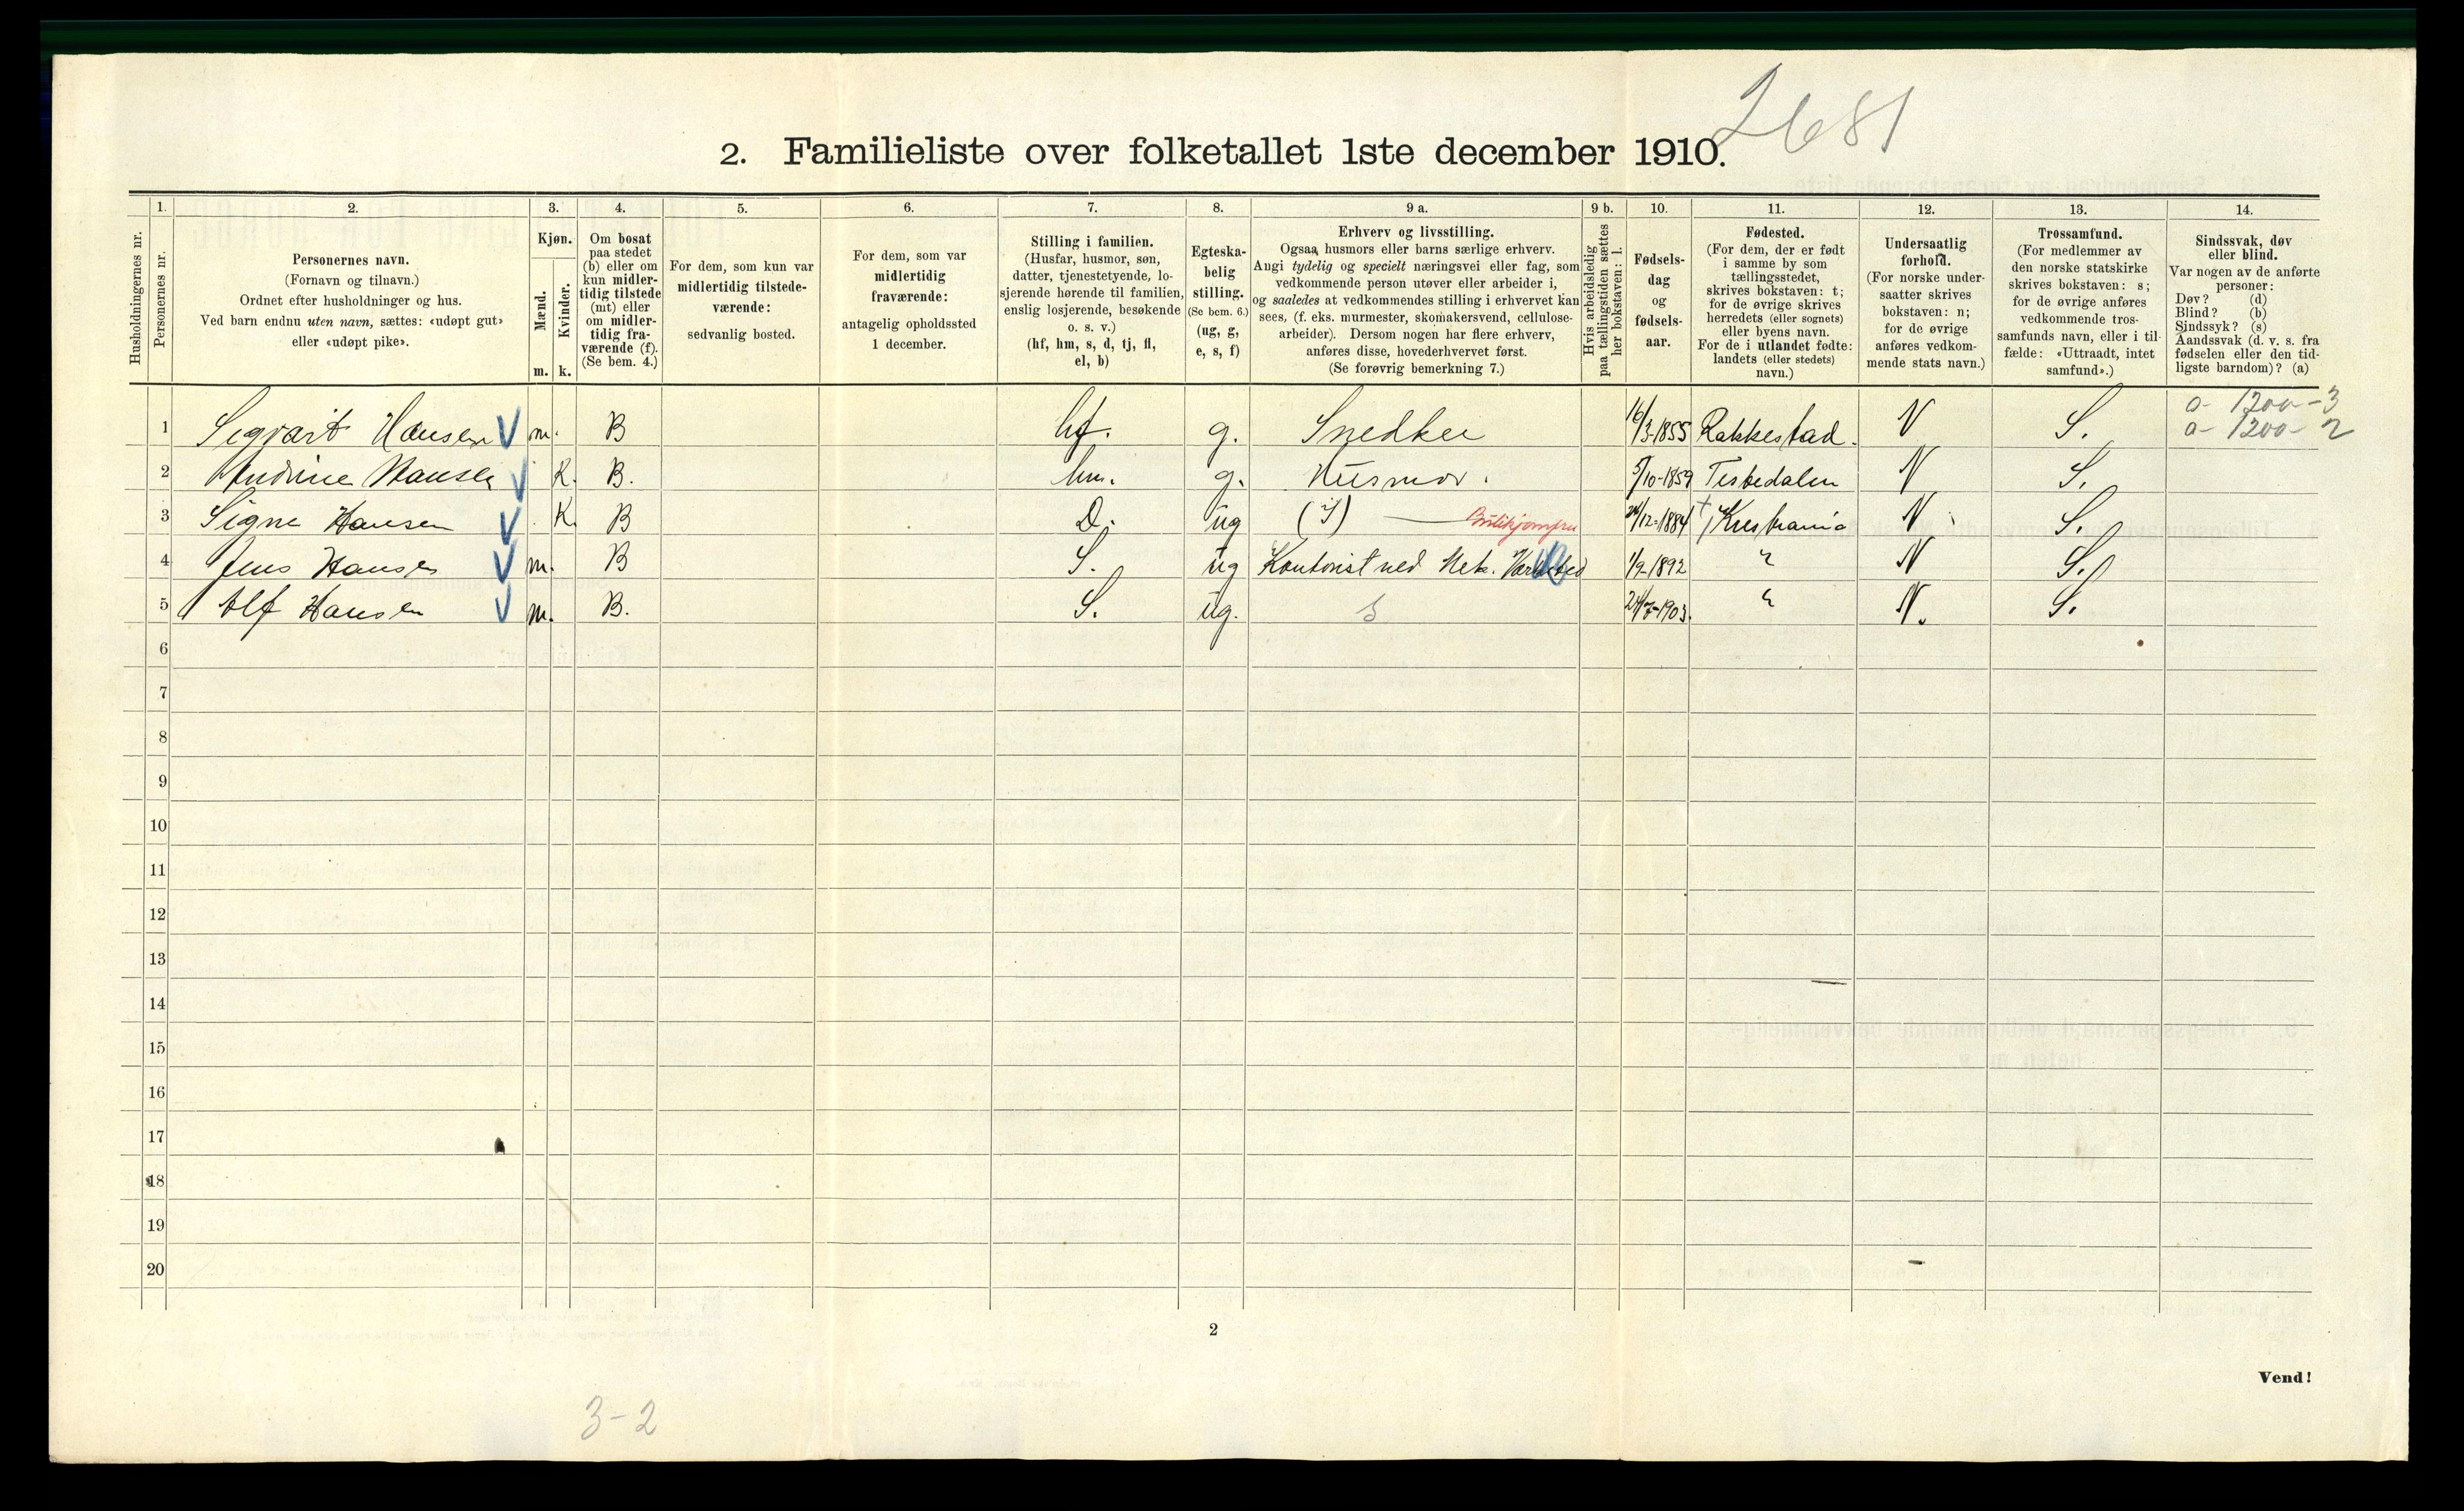 2681
2. Familieliste over folketallet 1ste december 1910.
Husholdningernes nr.
1.
Personernes nr.
2.
Personernes navn.
(Fornavn og tilnavn.)
Ordnet efter husholdninger og hus.
Ved barn endnu uten navn, sættes: «udøpt gut»
eller «udøpt pike».
3.
Kjøn.
Mænd.
Kvinder.
m. k.
4.
Om bosat
paa stedet
(b) eller om
kun midler-
tidig tilstede
(mt) eller
om midler-
tidig fra-
værende (f).
(Se bem. 4.)
5.
For dem, som kun var
midlertidig tilstede-
værende:
sedvanlig bosted.
6.
For dem, som var
midlertidig
fraværende:
antagelig opholdssted
1 december.
7.
Stilling i familien.
(Husfar, husmor, søn,
datter, tjenestetyende, lo-
sjerende hørende til familien,
enslig losjerende, besøkende
o. s. v.)
(hf, hm, s, d, tj, fl,
el, b)
8.
Egteska-
belig
stilling.
(Se bem. 6.)
(ug, g,
e, s, f)
9 a.
Erhverv og livsstilling.
Ogsaa husmors eller barns særlige erhverv.
Angi tydelig og specielt næringsvei eller fag, som
vedkommende person utøver eller arbeider i,
og saaledes at vedkommendes stilling i erhvervet kan
sees, (f. eks. murmester, skomakersvend, cellulose-
arbeider). Dersom nogen har flere erhverv,
anføres disse, hovederhvervet først.
(Se forøvrig bemerkning 7.)
9 b.
Hvis arbeidsledig
paa tællingstiden sættes
her bokstaven: l.
10.
Fødsels-
dag
og
fødsels-
aar.
11.
Fødested.
(For dem, der er født
i samme by som
tællingsstedet,
skrives bokstaven: t;
for de øvrige skrives
herredets (eller sognets)
eller byens navn.
For de i utlandet fødte:
landets (eller stedets)
navn.)
12.
Undersaatlig
forhold.
(For norske under-
saatter skrives
bokstaven: n;
for de øvrige
anføres vedkom-
mende stats navn.)
13.
Trossamfund.
(For medlemmer av
den norske statskirke
skrives bokstaven: s;
for de øvrige anføres
vedkommende tros-
samfunds navn, eller i til-
fælde: «Uttraadt, intet
samfund».)
14.
Sindssvak, døv
eller blind.
Var nogen av de anførte
personer:
Døv? (d)
Blind? (b)
Sindssyk? (s)
Aandssvak (d. v. s. fra
fødselen eller den tid-
ligste barndom)? (a)
a- 1200-3
1 Sigvart Hansen V m. B hf. g. Snedker 16/3-1855 Rakkestad. N S. a- 1200-2
2 Andrine Hansen V K. B. hm. g. Husmor. 5/10-1859 N S.
3 Signe Hansen V K. B D. ug Butikjomfru 24/12-1884 t Kristiania N S.
4 Jens Hansen V m. B S. ug Kontorist ved Mek. Værksted 1/9-1892 " N S.
5 Alf Hansen V m. B. S. ug. 24/7-1903. " N. S.
6
7
8
9
10
11
12
13
14
15
16
17
18
19
20
2
Vend!
3-2